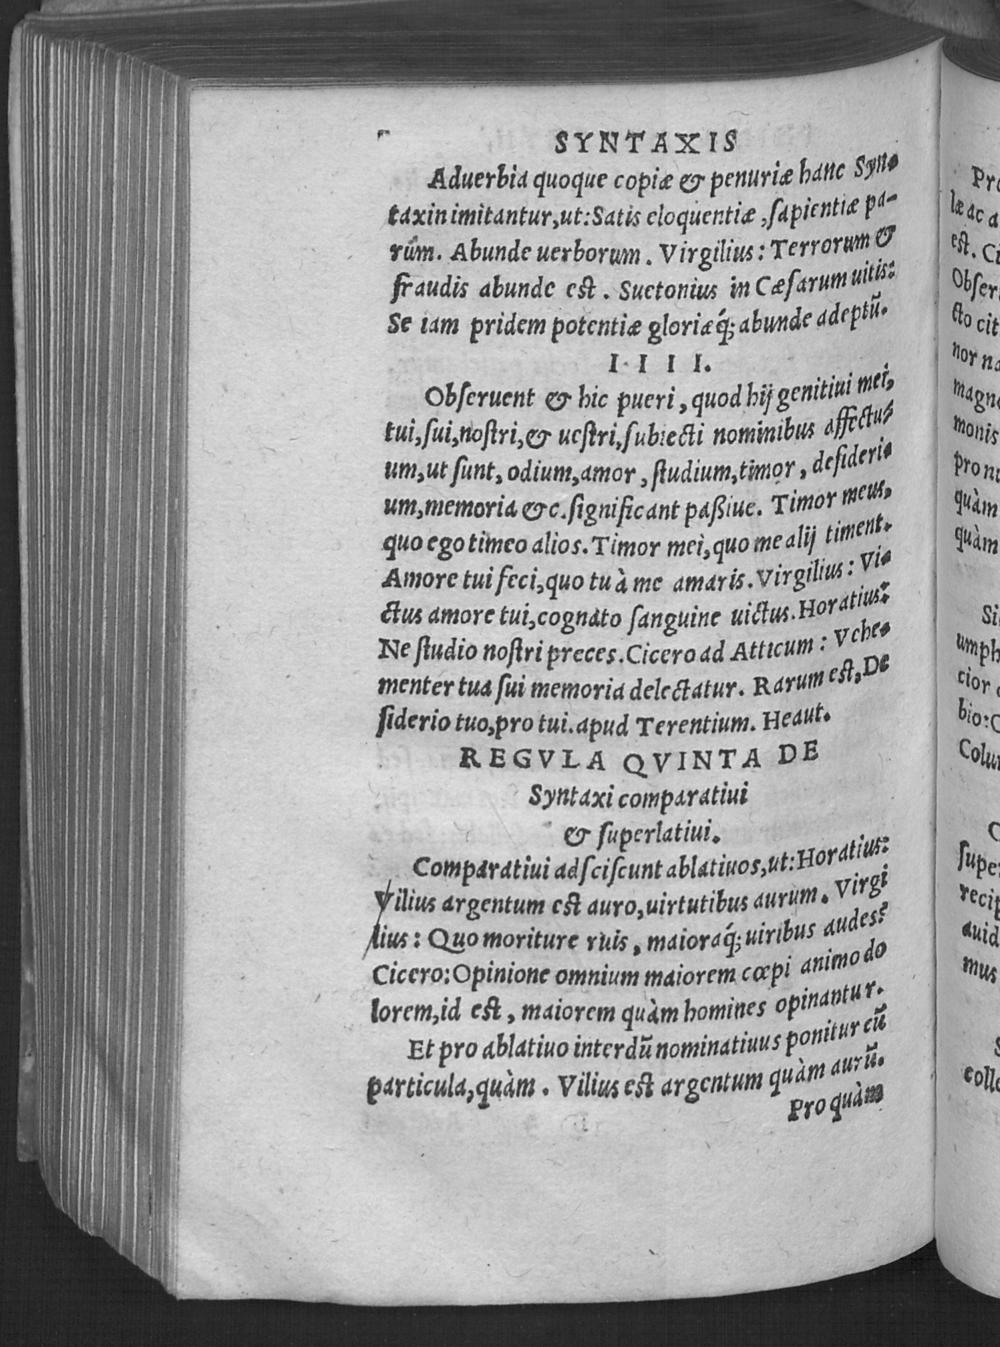 SYNTAXIS
Aduerbia quoque copiæ & penuriæ hanc Syn-
taxin imitantur, ut: Satis eloquentiæ, ſapientiæ pa-
rûm. Abunde uerborum. Virgilius: Terrorum &
fraudis abunde eſt. Suetonius in Cæſarum uitis:
Se iam pridem potentiæ gloriæq́; abunde adeptũ.
I I I I.
Obſeruent & hic pueri, quod hij genitiui mei,
tui, ſui, noſtri, & ueſtri, ſubiecti nominibus affectu-
um, ut ſunt, odium, amor, ſtudium, timor, deſideri-
um, memoria &c. ſignificant paßiue. Timor meus,
quo ego timeo alios. Timor mei, quo me alij timent.
Amore tui feci, quo tu à me amaris. Virgilius: Vi-
ctus amore tui, cognato ſanguine uictus. Horatius:
Ne ſtudio noſtri preces. Cicero ad Atticum: Vehe-
menter tua ſui memoria delectatur. Rarum eſt, De
ſiderio tuo, pro tui. apud Terentium. Heaut.
REGVLA QVINTA DE
Syntaxi comparatiui
& ſuperlatiui.
Comparatiui adſciſcunt ablatiuos, ut: Horatius:
Vilius argentum eſt auro, uirtutibus aurum. Virgi
lius: Quo moriture ruis, maioraq́; uiribus audes?
Cicero: Opinione omnium maiorem cœpi animo do
lorem, id eſt, maiorem quàm homines opinantur.
Et pro ablatiuo interdũ nominatiuus ponitur cũ
particula, quàm. Vilius eſt argentum quàm aurũ.
Pro quàm